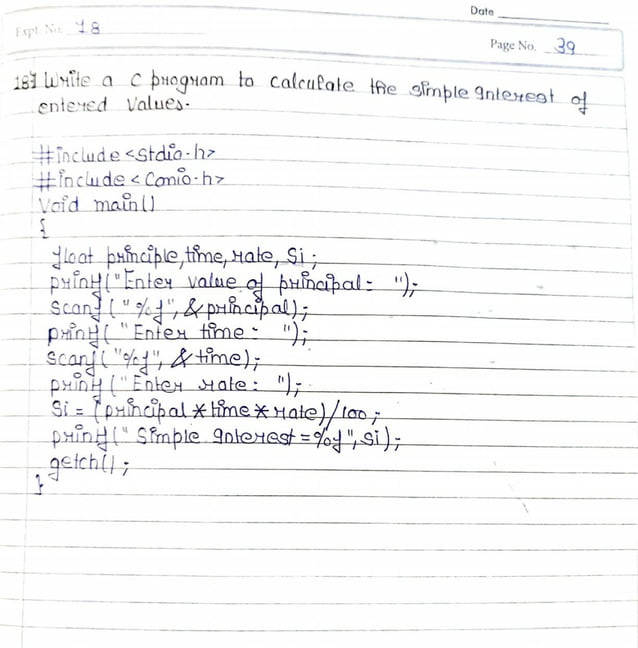 Date
Expt. No. 18
Page No. 39
18} Write a C program to calculate the simple Interest of
entered values.
#include <stdio.h>
#include <conio.h>
Void main()
{
float principle, time, rate, Si;
printf("Enter value of principal: ");
scanf("%f", &principal);
printf("Enter time: ");
scanf("%f", &time);
printf("Enter rate: ");
Si = (principal*time*rate)/100;
printf("Simple Interest=%f", Si);
getch();
}